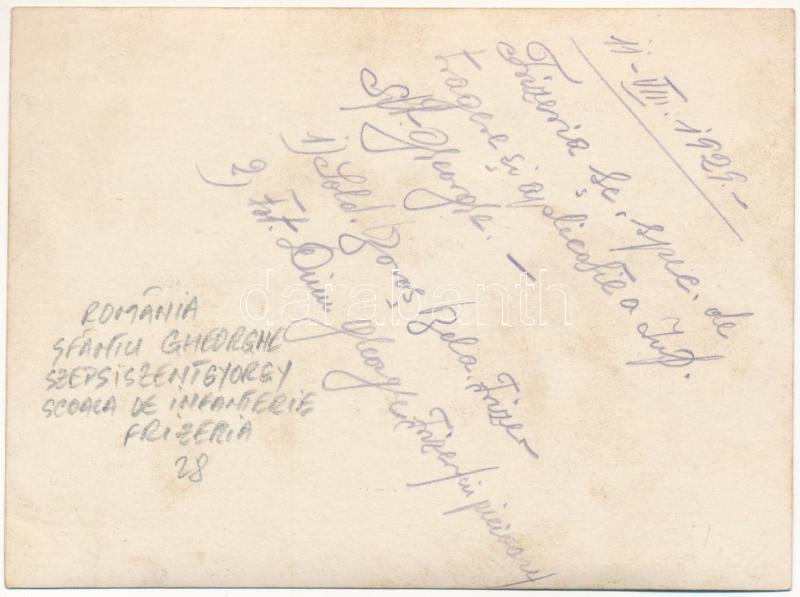 11-VIII. 1929.-
Frizeria Șc. spec. de
tragere și aplicație a Inf.
Sft. Gheorghe. -
1) Sold. Boroș Bela. Frizer
2) Frt. Dinu Gheorghe, Frizer in picioare
darabanth
ROMÂNIA
SFÂNTU GHEORGHE
SZEPSISZENTGYORGY
SCOALA DE INFANTERIE
FRIZERIA
28